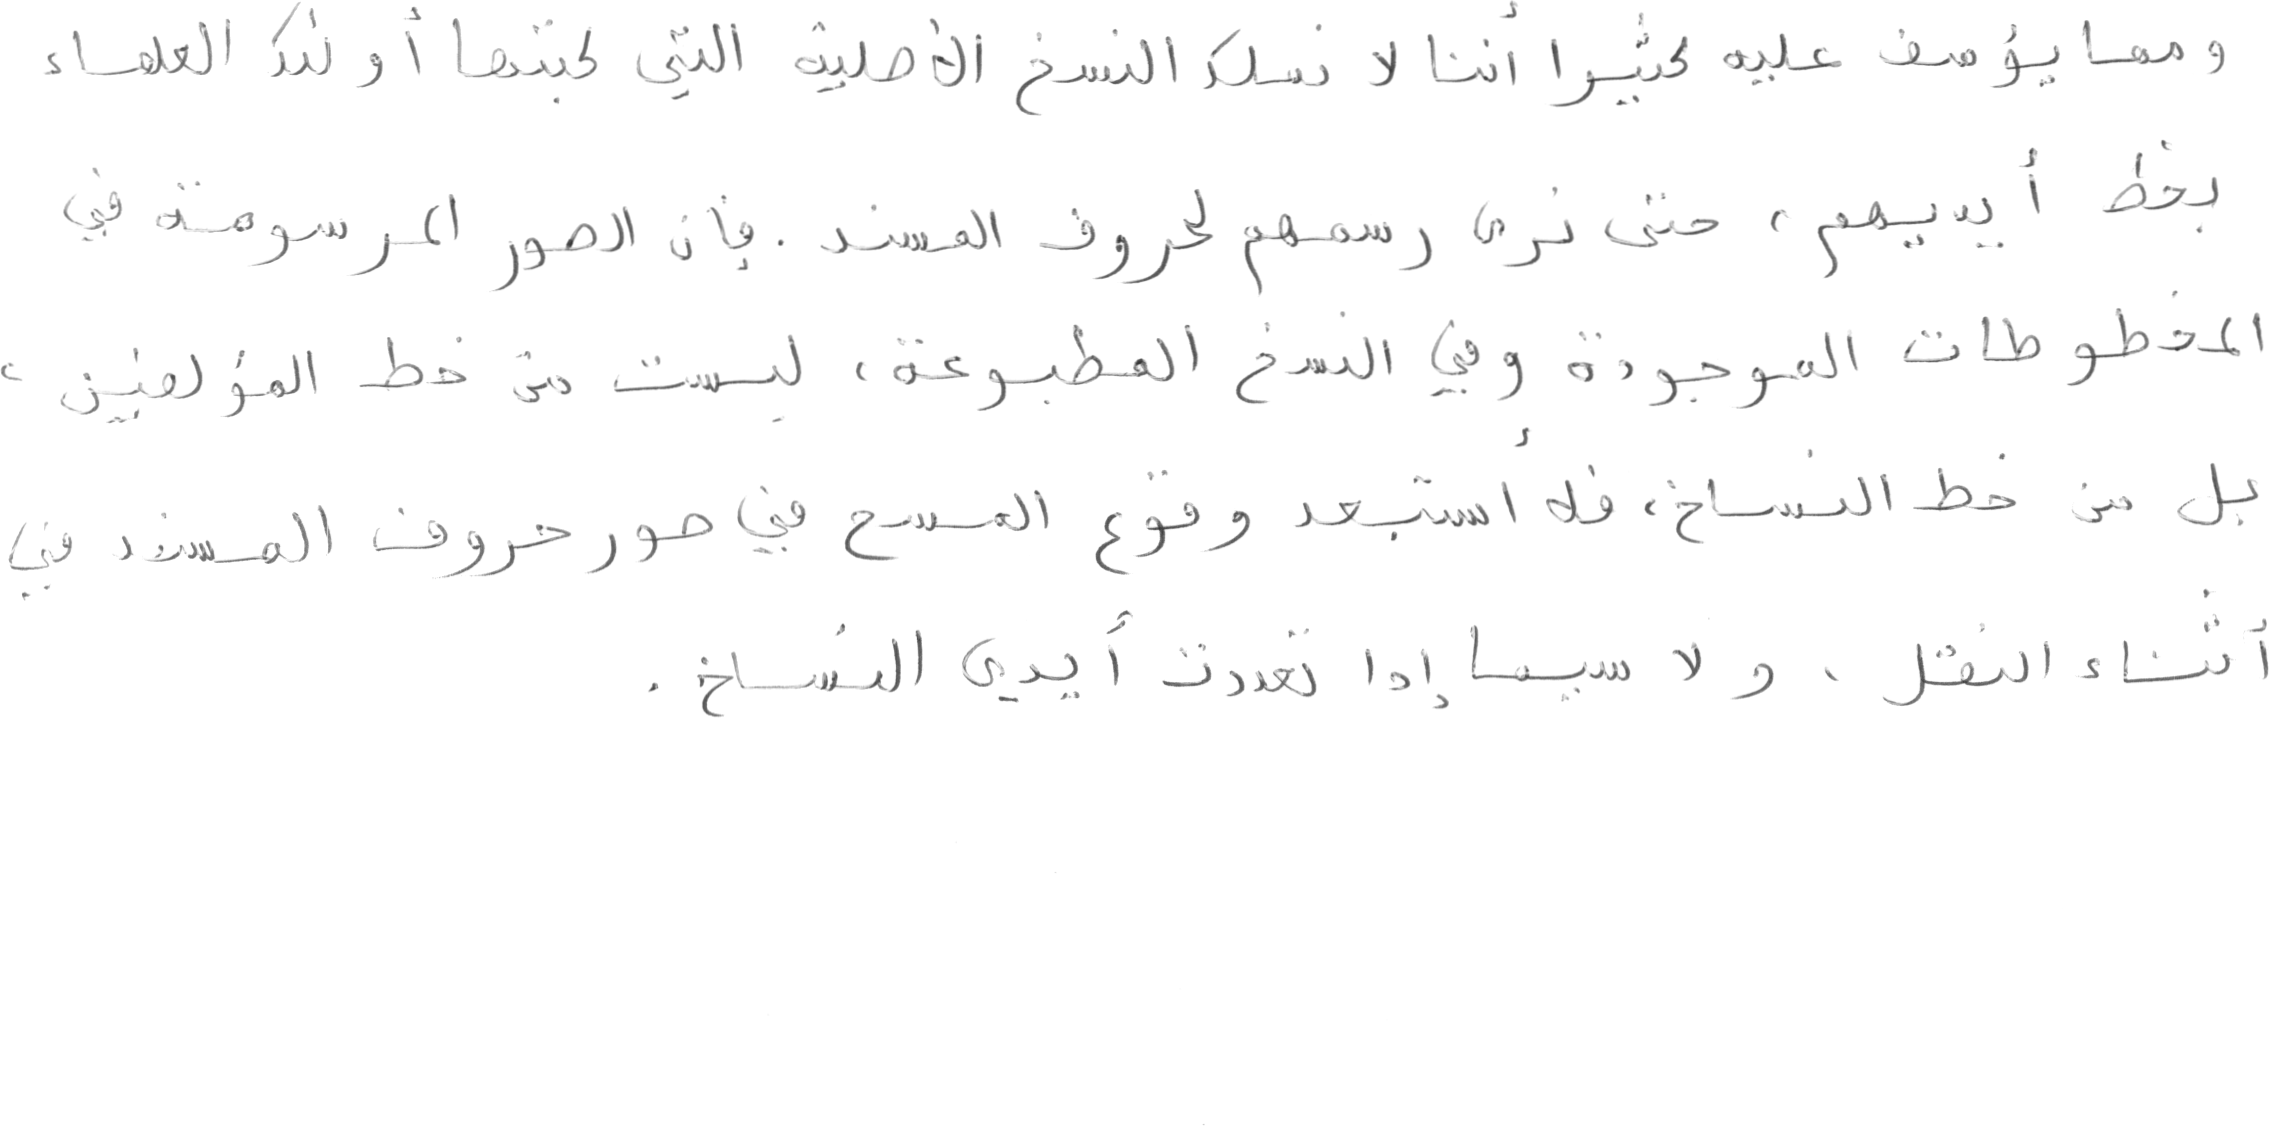 ومما يؤسف عليه كثيرا أننا لا نملك النسخ الأصلية التي كتبها أولئك العلماء
بخط أيديهم، حتى نرى رسمهم لحروف المسند. فإن الصور المرسومة في
المخطوطات الموجودة وفي النسخ المطبوعة، ليست من خط المؤلفين،
بل من خط النساخ، فلا أستبعد وقوع المسح في صور حروف المسند في
أثناء النقل، ولا سيما إدا تعددت أيدي النساخ.